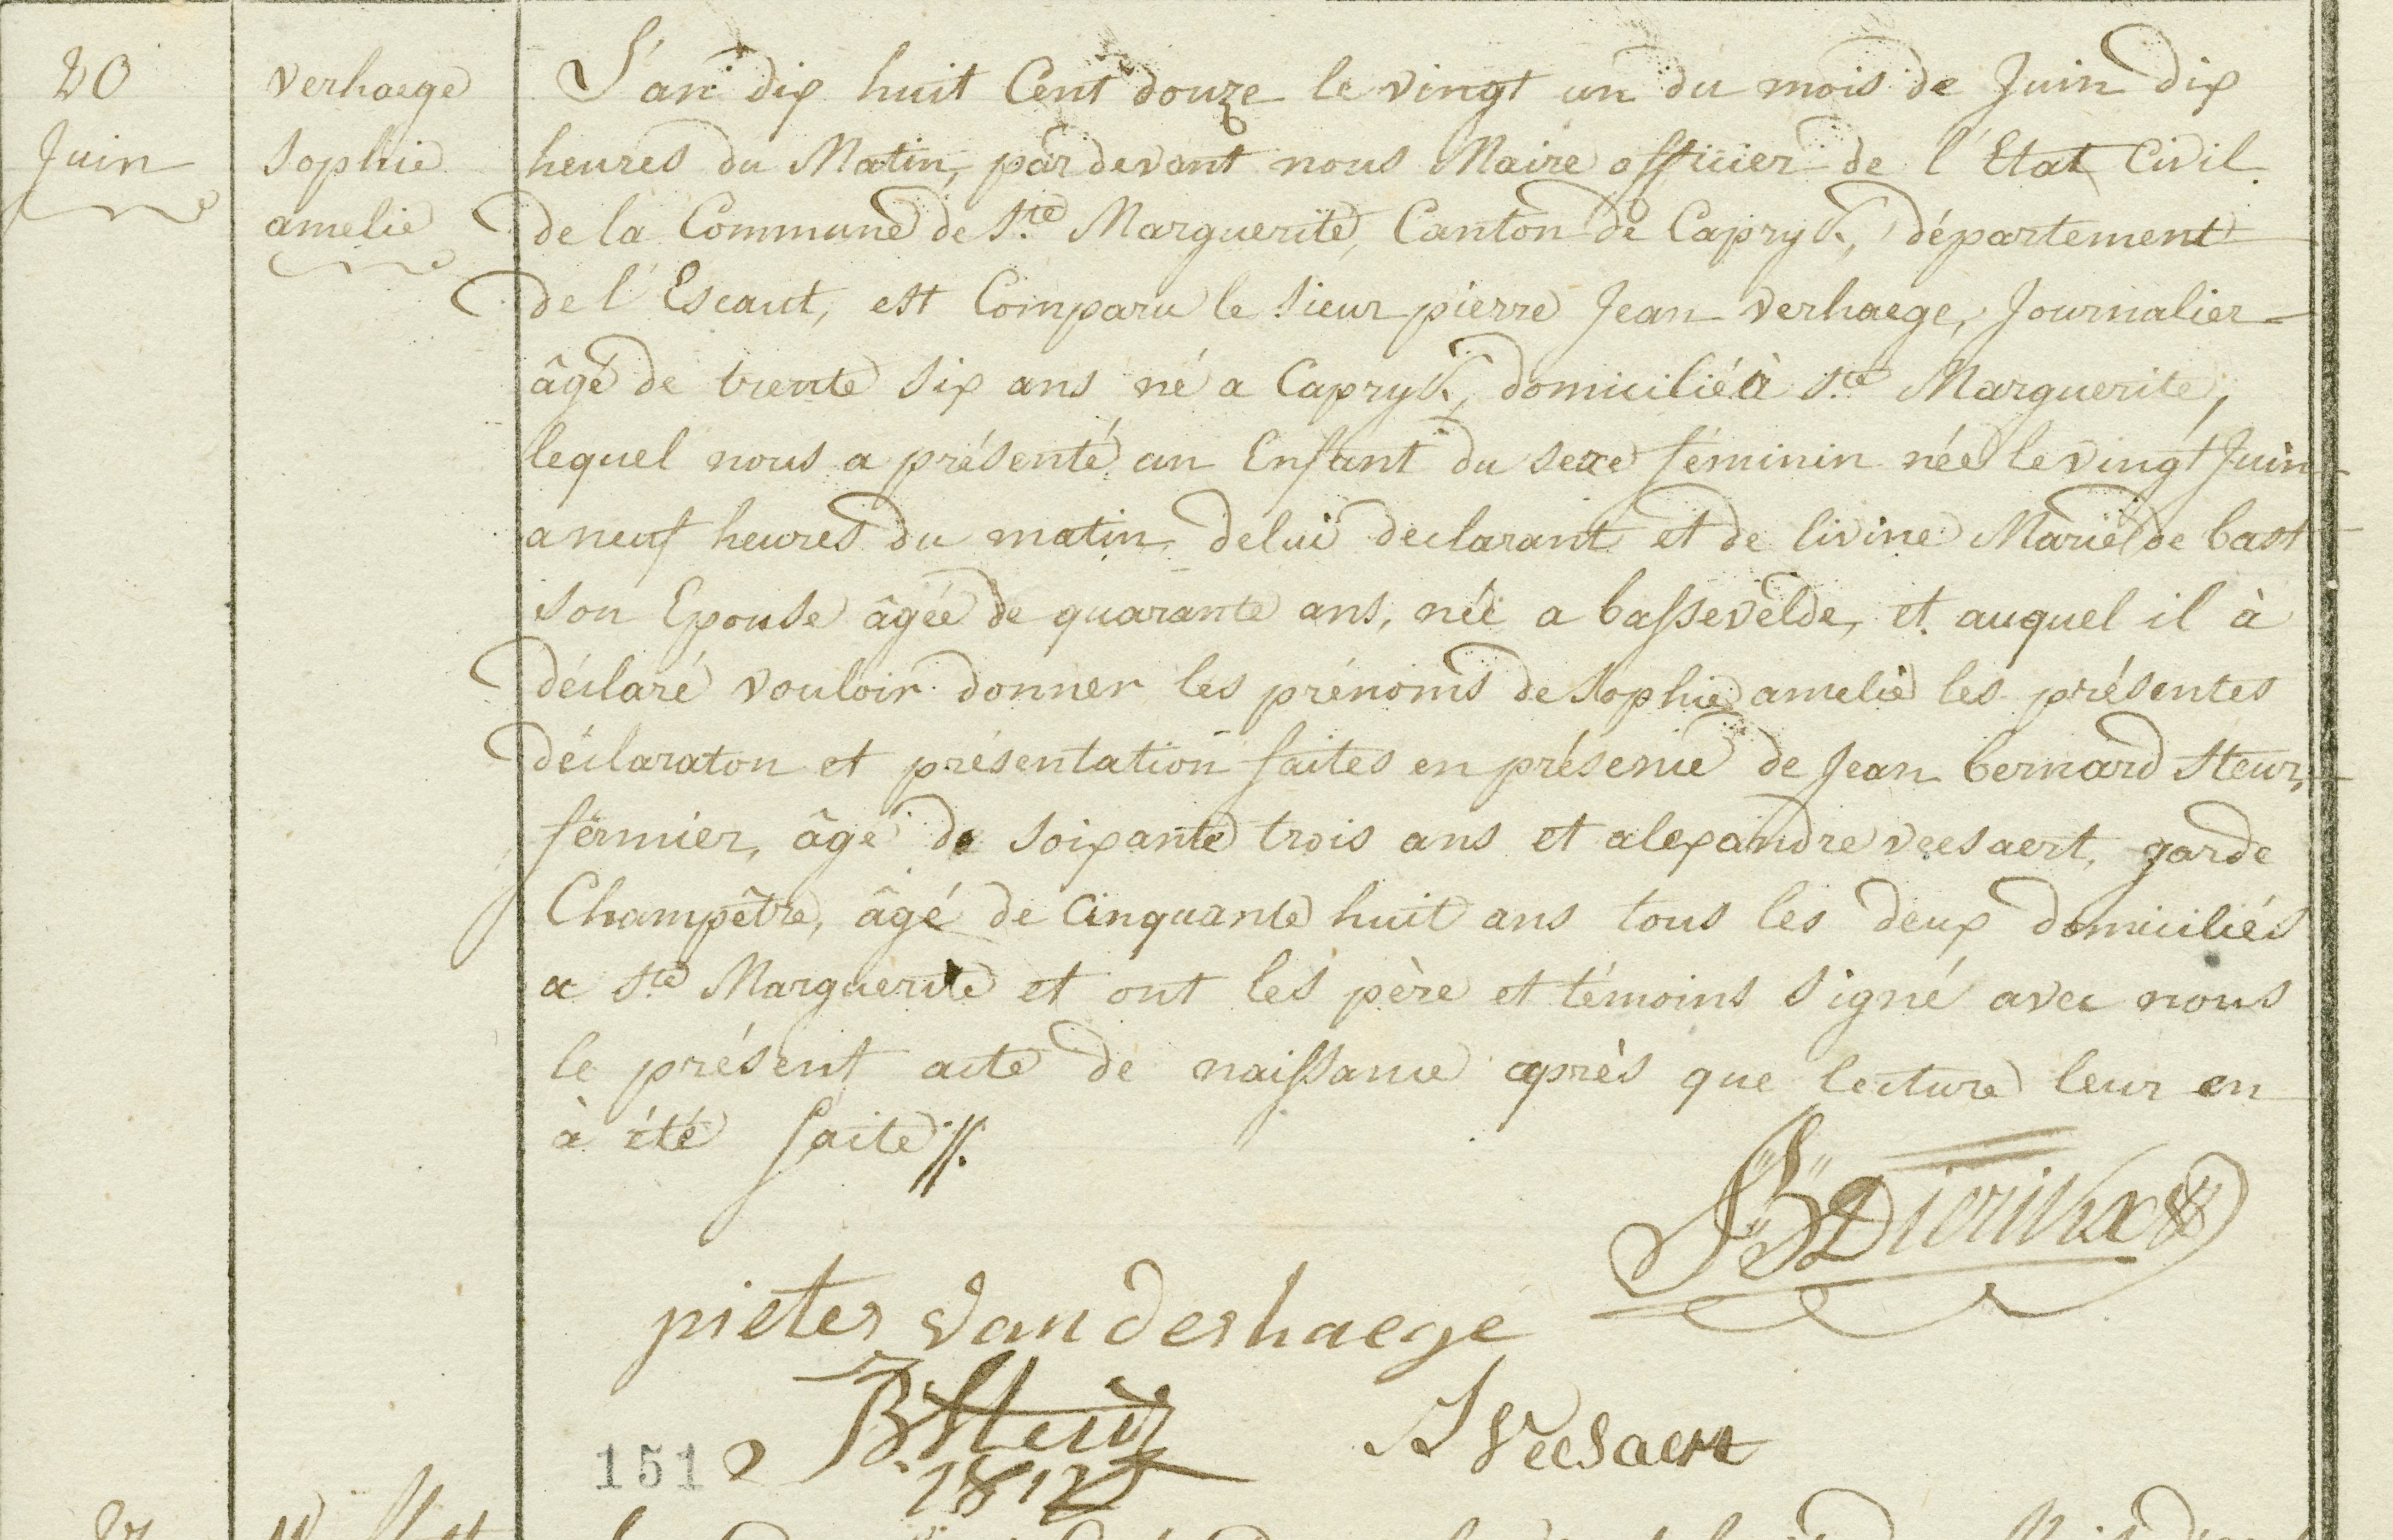 20
Juin
verhaege
Sophie
amelie
L'an dix huit Cent douze le vingt un du mois de Juin dix
heures du Matin, par devant nous Maire officier de l'Etat Civil
de la Commune de Ste Marguerite, Canton de Capryk, département
de l'Escaut, est Comparu le sieur pierre Jean verhaege, Journalier
âgé de trente six ans né a Capryk, domicilié à Ste Marguerite,
lequel nous a présenté un Enfant du sexe féminin née le vingt Juin
a neuf heures du matin de lui declarant et de livine Marie de bast
son Epouse âgée de quarante ans, née a bassevelde, et auquel il à
déclaré vouloir donner les prénoms de Sophie amelie les présentes
déclaraton et présentation faites en présence de Jean bernard Steur,
fermier, âgé de soixante trois ans et alexandre veesaert, garde
Champêtre, âgé de Cinquante huit ans tous les deux domiciliés
a Ste Marguerite et ont les père et témoins signé avec nous
le présent acte de naissance après que lecture leur en
à été faite
pieter van derhaege
B Steur
1812
151
Veesaert